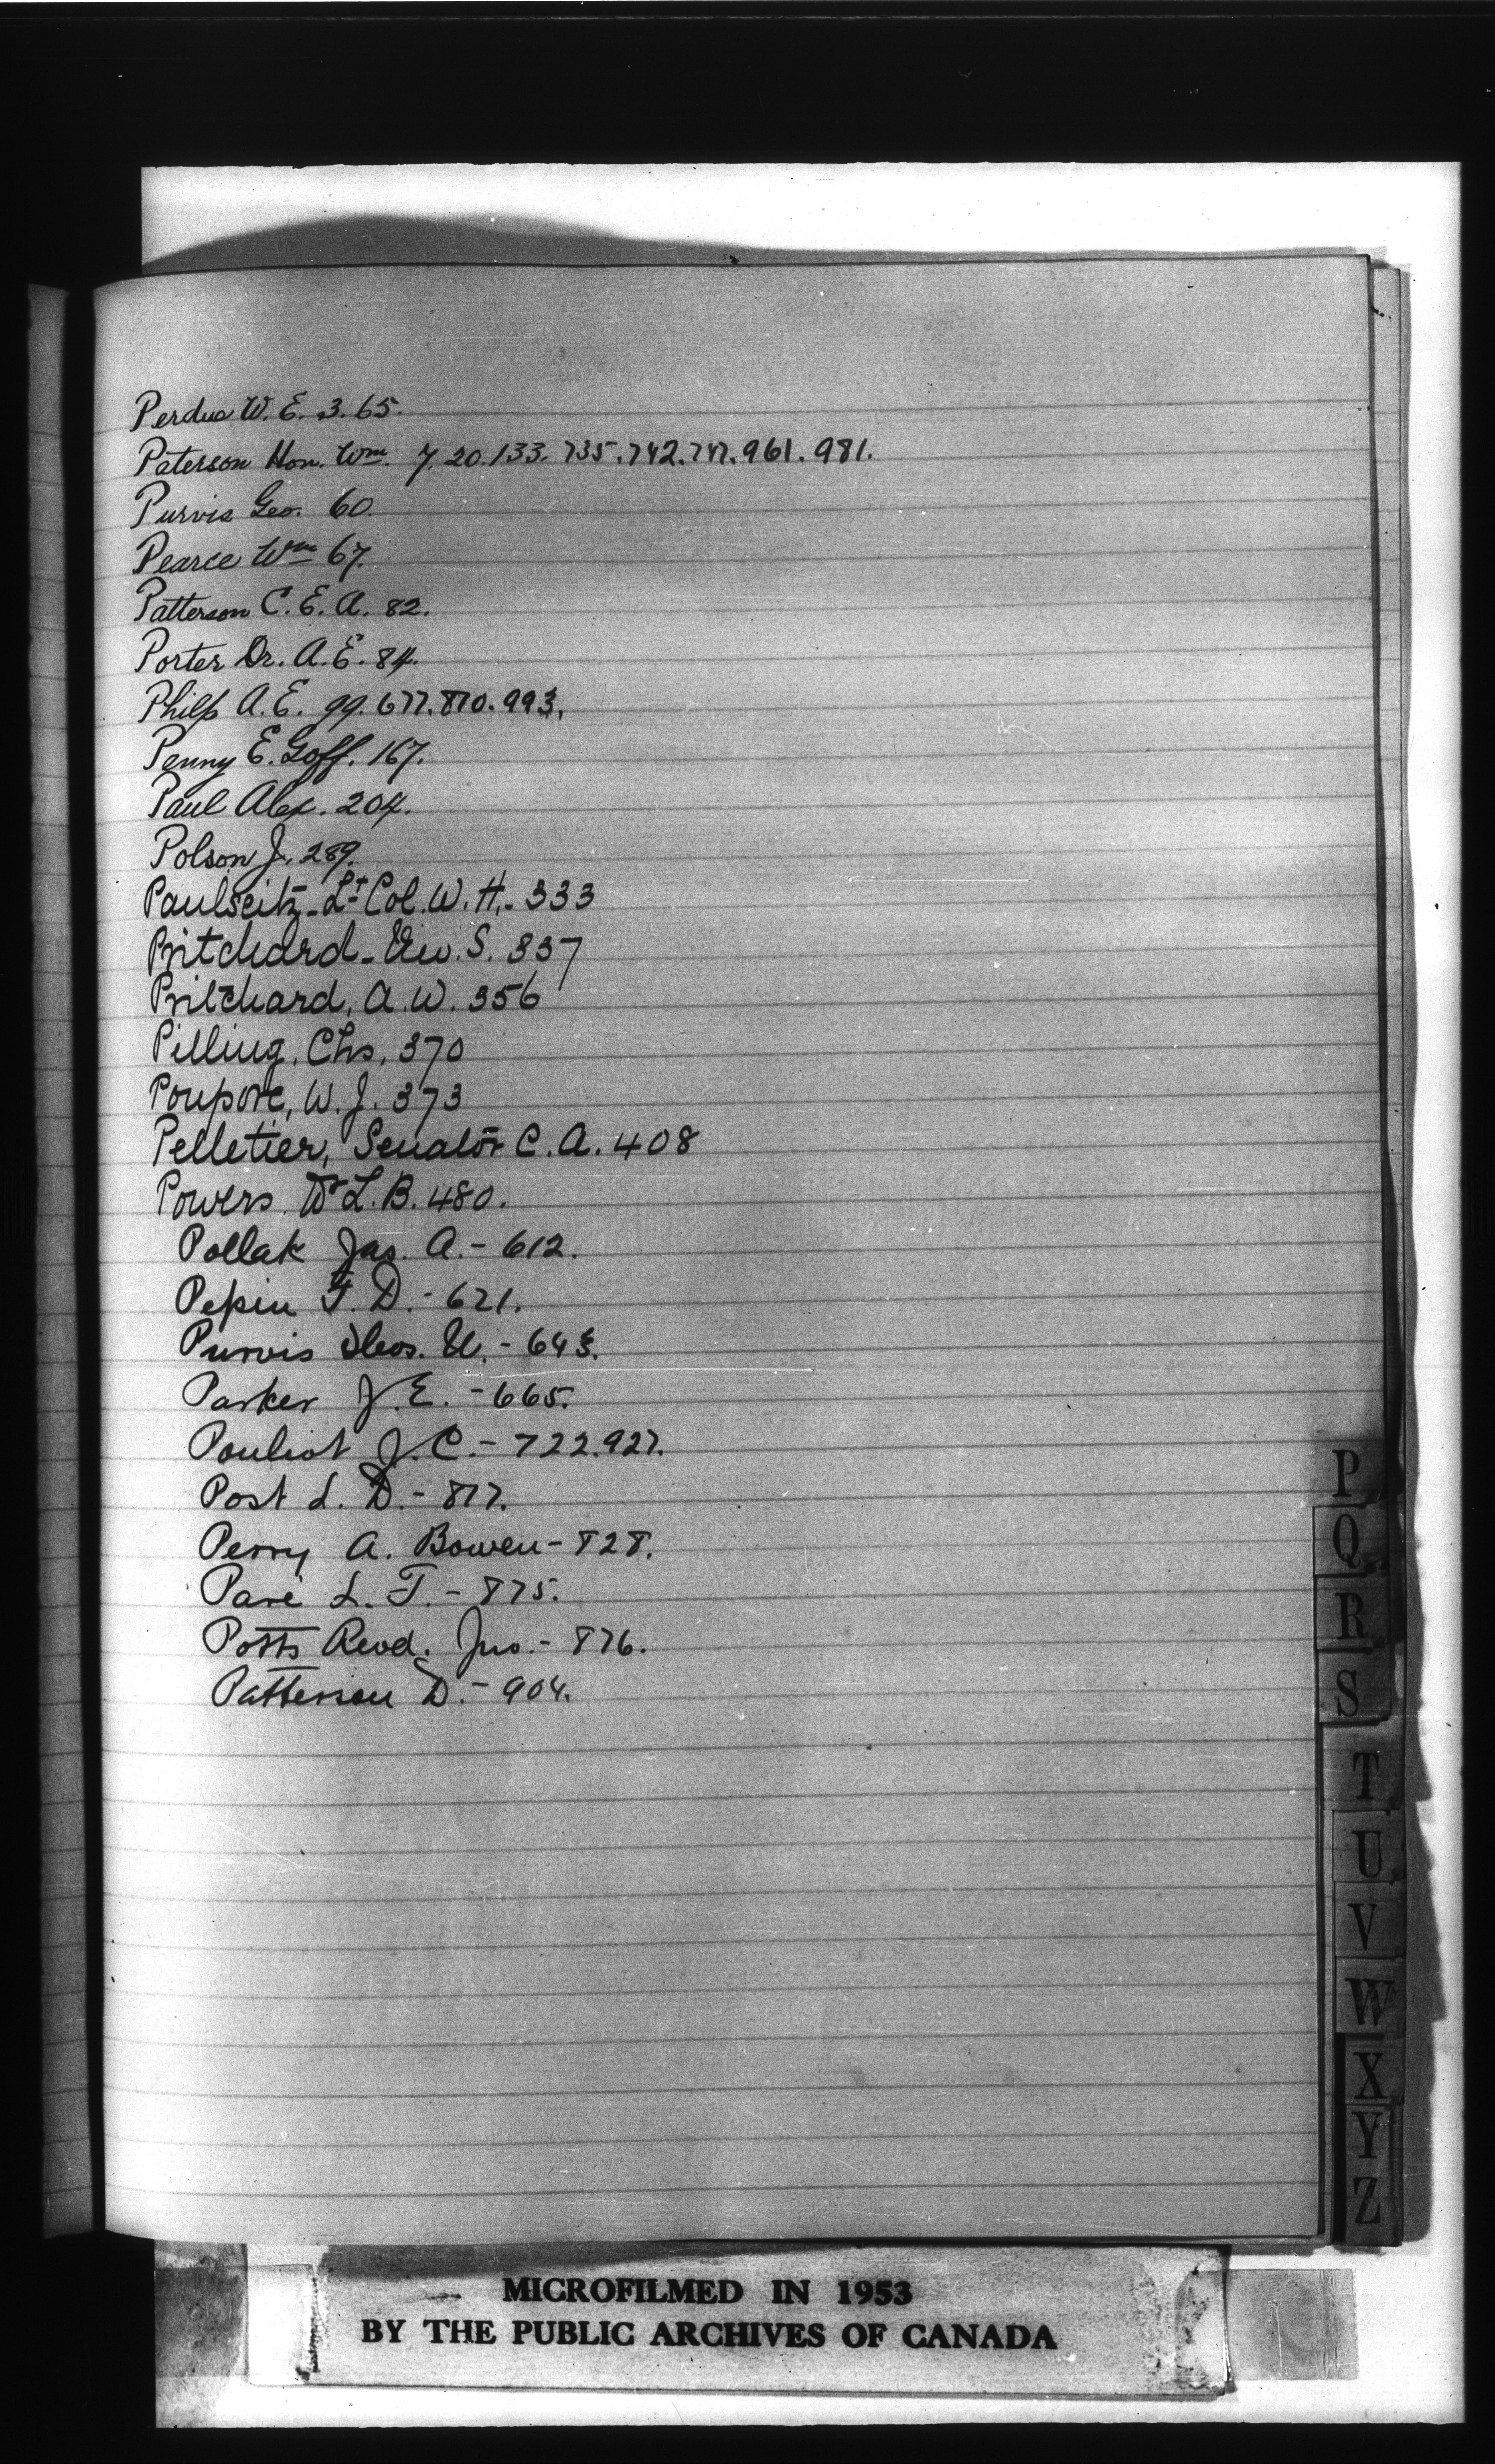 Perdue W. E. 3. 65.
Paterson Hon. Wm. 7. 20. 133. 735. 742. 747. 961. 981.
Purvis Geo. 60.
Pearce Wm 67.
Patterson C. E. A. 82.
Porter Dr. A. E. 84.
Philp A. E. 99. 677. 870. 993.
Penny E. Goff. 167.
Paul Alex. 204.
Polson J. 289.
Paulseitz - Lt Col. W. H. - 333
Pritchard - S. 337
Pritchard, A. W. 356
Pilling, Chs, 370
Poupore, W. J. 373
Pelletier, Senator C. A. 408
Powers. Dr L. B. 480.
Pollak Jas. A. - 612.
Pepin F. D. - 621.
Purvis Geo. - 643.
Parker J. E. - 665.
Pouliot J. C. - 722. 927.
Post L. D. - 817.
Perry A. Bowen - 828.
Paré L. J. - 875.
Potts Revd. Jno. - 876.
Patterson D. - 904.
P
Q
R
S
T
U
V
W
X
Y
Z
MICROFILMED IN 1953
BY THE PUBLIC ARCHIVES OF CANADA